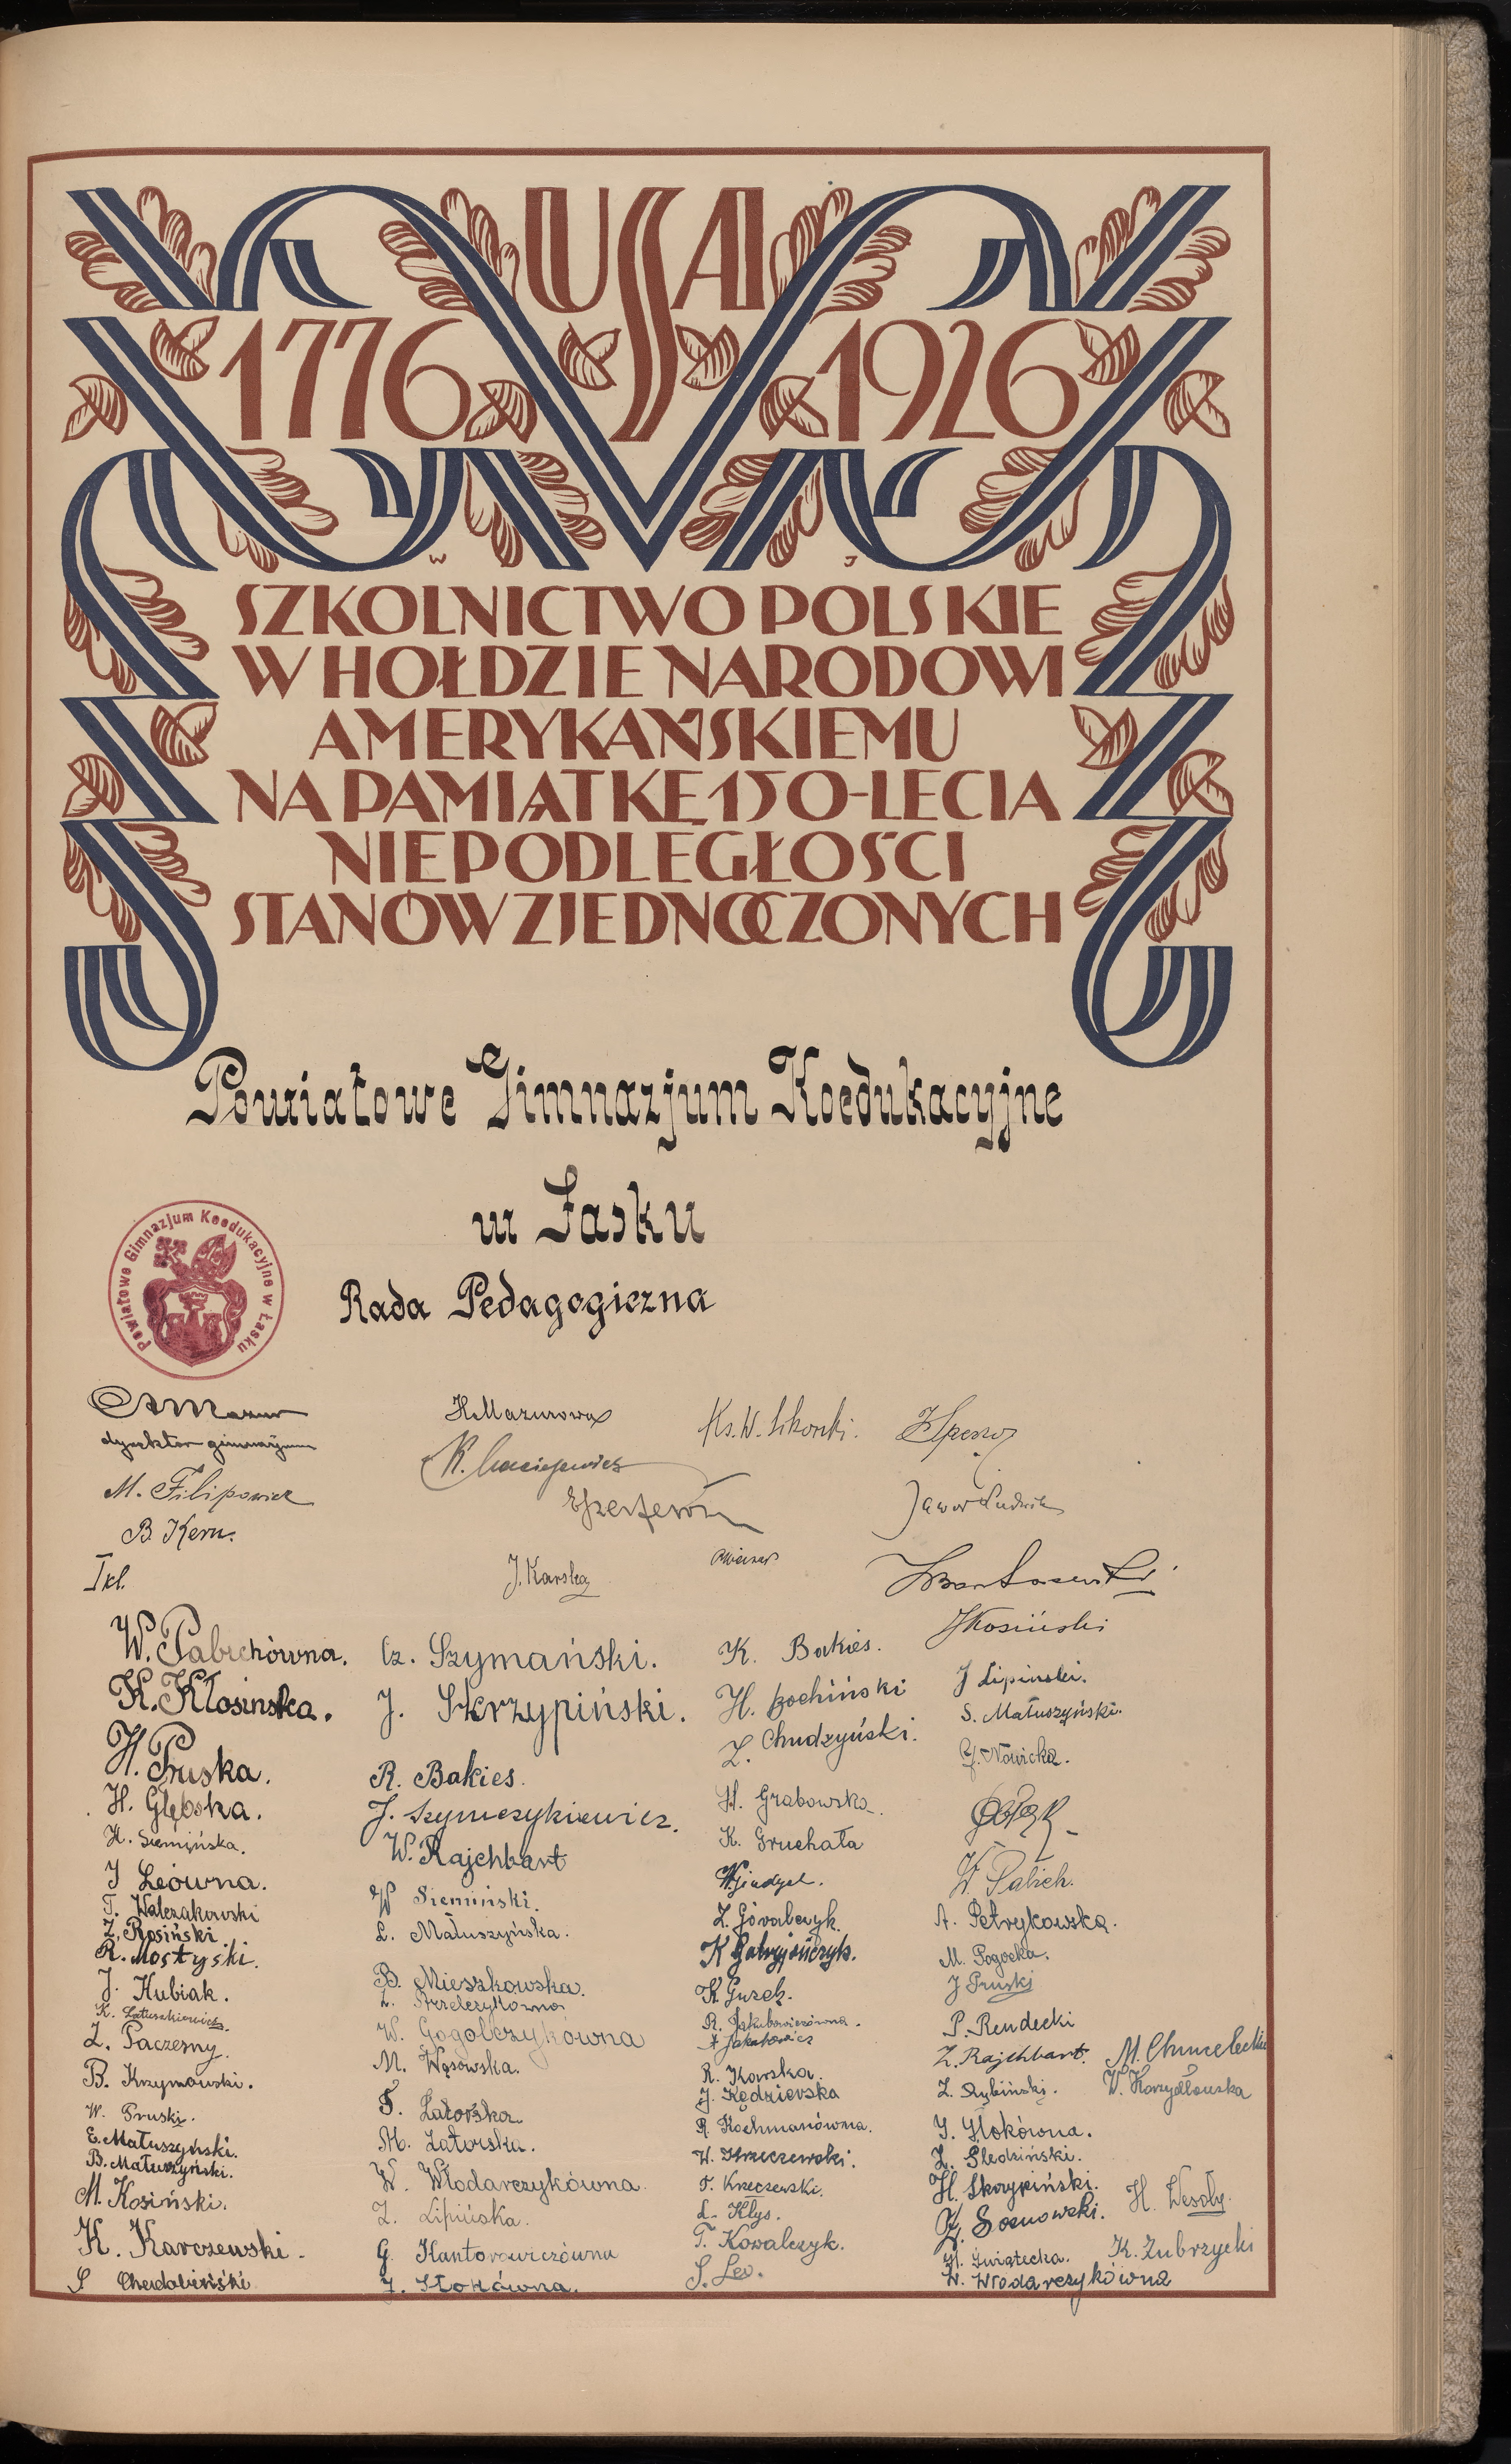 USA
1776 1926
W J
SZKOLNICTWO POLSKIE
W HOŁDZIE NARODOWI
AMERYKAŃSKIEMU
NA PAMIĄTKĘ 150-LECIA
NIEPODLEGŁOŚCI
STANÓW ZJEDNOCZONYCH
Powiatowe Gimnazjum Koedukacyjne
w Łasku
Powiatowe Gimnazjum Koedukacyjne w Łasku
Rada Pedagogiczna
Mazur
dyrektor gimnazjum
M. Filipowicz
B. Kern.
H. Mazurowa
K. Maciejewicz
J. Karska
Ks. W. Sikorski.
Jawor Ludwik
J Kosiński
I kl.
W. Pabichówna.
K. Kłosinska.
H. Pruska.
H. Głębska.
H. Siemińska.
J Leówna.
T. Walczakowski
Z. Rosiński
R. Mostyski.
J. Kubiak.
K. Łatuszkiewicz.
Z. Paczesny.
B. Krzymowski.
W. Pruski.
E. Matuszyński.
B. Matuszyński.
M. Kosiński.
K. Karczewski.
S Chudobiński
Cz. Szymański.
J. Skrzypiński.
R. Bakies.
J. Szymczykiewicz.
W. Rajchbart
W Siemiński.
L. Matuszyńska.
B. Mieszkowska.
Z. Strzelczykówna
W. Gogolczykówna
M. Wąsowska.
F. Zatorska
H. Zatorska.
W. Włodarczykówna.
Z. Lipińska.
G. Kantorowiczówna
J. Stokówna.
K. Bakies.
H. Bochiński
Z. Chudzyński.
H. Grabowska.
K. Gruchała
Z. Góralczyk.
K Gatryjończyk.
K Guzek.
R. Jakubowiczówna.
A Jakubowicz
R. Karska.
J. Kędzierska
R. Kochmanówna.
W. Krzeczewski.
F. Krzeczewski.
L. Kłys.
T. Kowalczyk.
S. Lev.
J Lipinski.
S. Matuszyński.
J. Nowicka.
W. Pabich.
A. Petrykowska.
M. Pogocka.
J Pruski
P. Rendecki
Z. Rajchbart.
Z. Rybiński.
J. Stokówna.
Z. Śledziński.
H. Skrzypiński.
Z. Sosnowski.
H. Świątecka.
W. Włodarczykówna
M. Chmielecki
W. Korzydłowska
H. Wesoły.
K. Zubrzycki